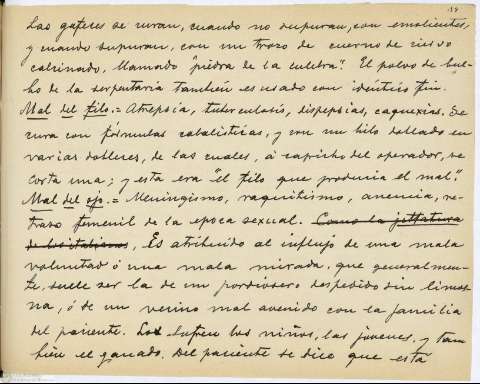 39
Los gaferes se curan, cuando no supuran, con emolientes,
y cuando supuran, con un trozo de cuerno de ciervo
calcinado, llamado "piedra de la culebra". El polvo de bul-
bo de la serpentaria también es usado con idéntico fin.
Mal del filo.= Atrepsia, tuberculosis, dispepsias, caquexias. Se
cura con fórmulas cabalísticas, y con un hilo doblado en
varios dobleces, de los cuales, á capricho del operador, se
corta una; y esta era "el filo que producía el mal".
Mal del ojo.= Meningismo, raquitismo, anemia, re-
traso femenil de la epoca sexual. Como la jettatura
de los italianos, Es atribuido al influjo de una mala
voluntad ó una mala mirada, que generalmen-
te, suele ser la de un pordiosero despedido sin limos-
na, ó de un vecino mal avenido con la familia
del paciente. Lo sufren los niños, las jóvenes, y tam-
bién el ganado. Del paciente se dice que está